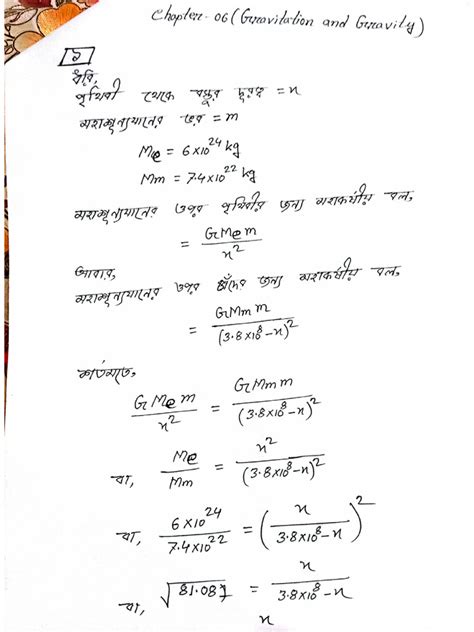 Chapter-06 (Gravitation and Gravity)
১
ধরি,
পৃথিবী থেকে বস্তুর দূরত্ব = x
মহাশূন্যযানের ভর = m
Me = 6×10²⁴ kg
Mm = 7.4×10²² kg
মহাশূন্যযানের ওপর পৃথিবীর জন্য মহাকর্ষীয় বল,
= GMem / x²
আবার,
মহাশূন্যযানের ওপর চাঁদের জন্য মহাকর্ষীয় বল,
= GMmm / (3.8×10⁸-x)²
শর্তমতে,
GMem / x² = GMmm / (3.8×10⁸-x)²
বা, Me / Mm = x² / (3.8×10⁸-x)²
বা, 6×10²⁴ / 7.4×10²² = (x / 3.8×10⁸-x)²
বা, √81.081 = x / 3.8×10⁸-x
x